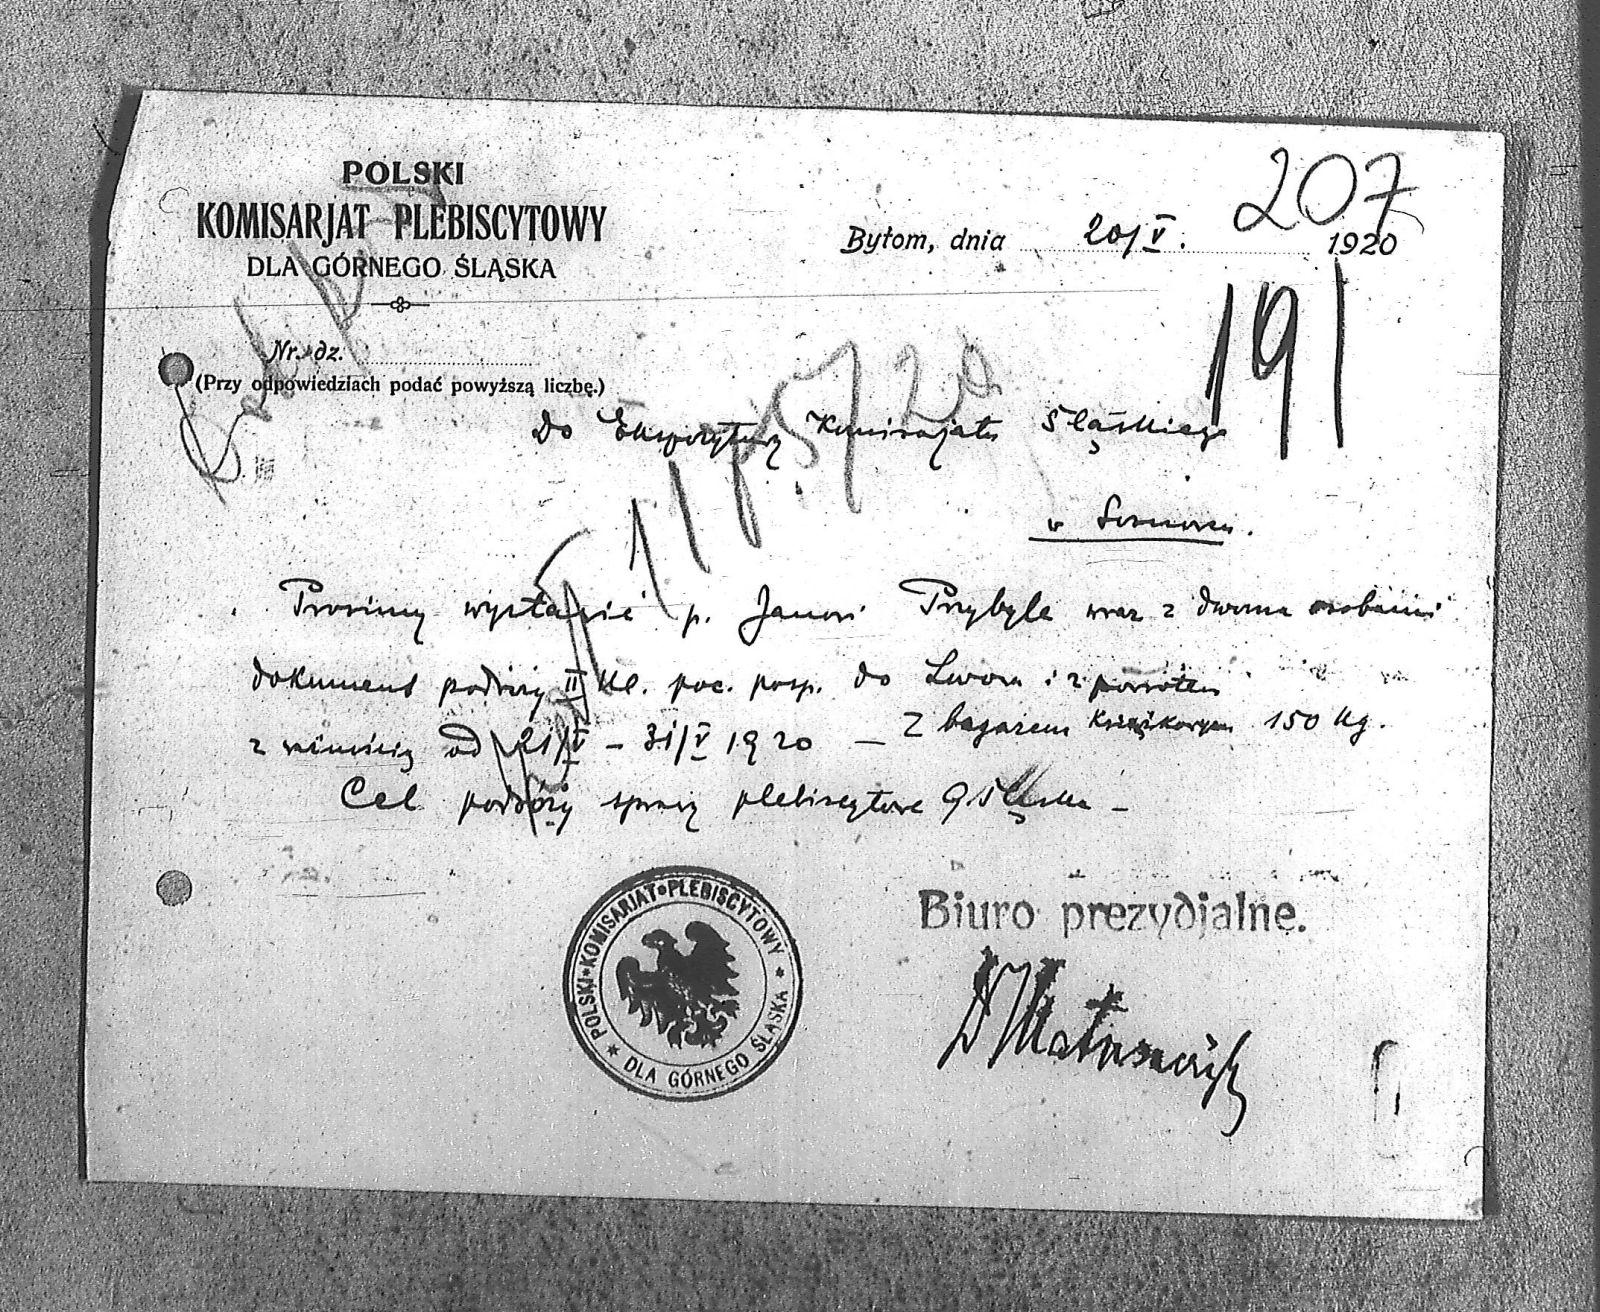 POLSKI
KOMISARJAT PLEBISCYTOWY
DLA GÓRNEGO ŚLĄSKA
207
Bytom, dnia 20/V. 1920
191
Nr. dz.
(Przy odpowiedziach podać powyższą liczbę.)
Do Ekspozytury Komisarjatu Śląskiego
w Sosnowcu.
Prosimy wystawić p. Janowi Przybyle wraz z dwoma osobami
dokument podróży II kl. poc. posp. do Lwowa i z powrotem
z ważnością od 21/V – 31/V 1920 – z bagażem książkowym 150 kg.
Cel podróży sprawy plebiscytowe G Śląska –
POLSKI KOMISARJAT PLEBISCYTOWY
DLA GÓRNEGO ŚLĄSKA
Biuro prezydjalne.